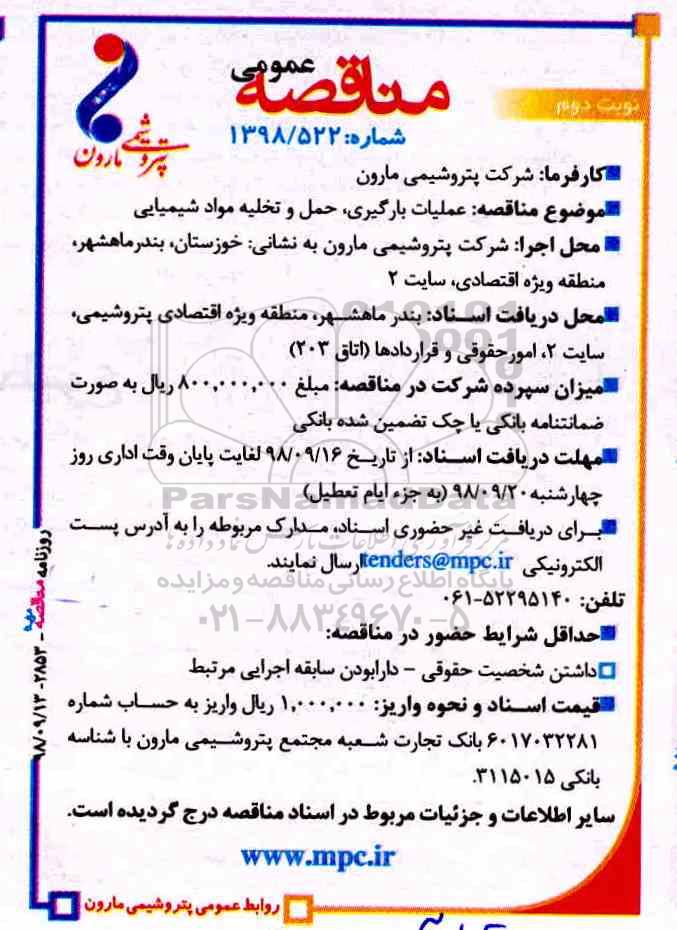 مناقصه عمومی
نوبت دوم
شماره: ۱۳۹۸/۵۲۲
پتروشیمی مارون
کارفرما: شرکت پتروشیمی مارون
موضوع مناقصه: عملیات بارگیری، حمل و تخلیه مواد شیمیایی
محل اجرا: شرکت پتروشیمی مارون به نشانی: خوزستان، بندرماهشهر،
منطقه ویژه اقتصادی، سایت ۲
محل دریافت اسناد: بندر ماهشهر، منطقه ویژه اقتصادی پتروشیمی،
سایت ۲، امورحقوقی و قراردادها (اتاق ۲۰۳)
میزان سپرده شرکت در مناقصه: مبلغ ۸۰۰,۰۰۰,۰۰۰ ریال به صورت
ضمانتنامه بانکی یا چک تضمین شده بانکی
مهلت دریافت اسناد: از تاریخ ۹۸/۰۹/۱۶ لغایت پایان وقت اداری روز
چهارشنبه ۹۸/۰۹/۲۰ (به جزء ایام تعطیل)
ParsNamadData
برای دریافت غیر حضوری اسناد، مدارک مربوطه را به آدرس پست
الکترونیکی tenders@mpc.ir ارسال نمایند.
پایگاه اطلاع رسانی مناقصه و مزایده
تلفن: ۰۶۱-۵۲۲۹۵۱۴۰
۰۲۱-۸۸۳۴۹۶۷۰-۵
حداقل شرایط حضور در مناقصه:
داشتن شخصیت حقوقی - دارابودن سابقه اجرایی مرتبط
قیمت اسناد و نحوه واریز: ۱,۰۰۰,۰۰۰ ریال واریز به حساب شماره
۶۰۱۷۰۳۲۲۸۱ بانک تجارت شعبه مجتمع پتروشیمی مارون با شناسه
بانکی ۳۱۱۵۰۱۵.
سایر اطلاعات و جزئیات مربوط در اسناد مناقصه درج گردیده است.
www.mpc.ir
روابط عمومی پتروشیمی مارون
روزنامه مناقصه - ۲۸۵۳ - ۹۸/۰۹/۱۳